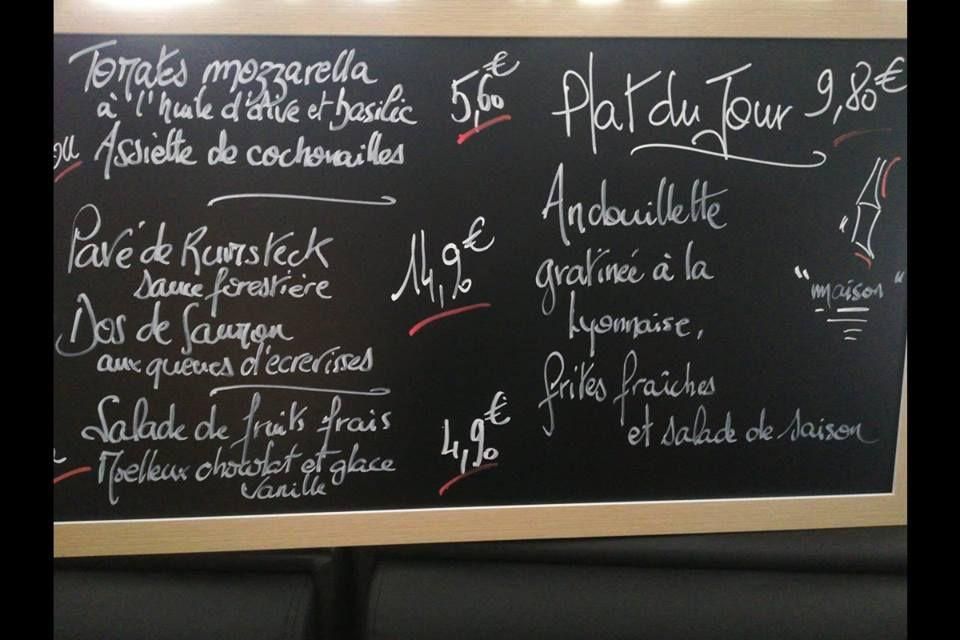 Tomates mozzarella
à l'huile d'olive et basilic
5,60€
Assiette de cochonailles
Pavé de Rumsteck
sauce forestière
14,90€
Dos de Saumon
aux queues d'écrevisses
Salade de fruits frais
4,90€
Moelleux chocolat et glace
vanille
Plat du Jour 9,80€
Andouillette
gratinée à la
Lyonnaise,
frites fraîches
et salade de saison
"maison"